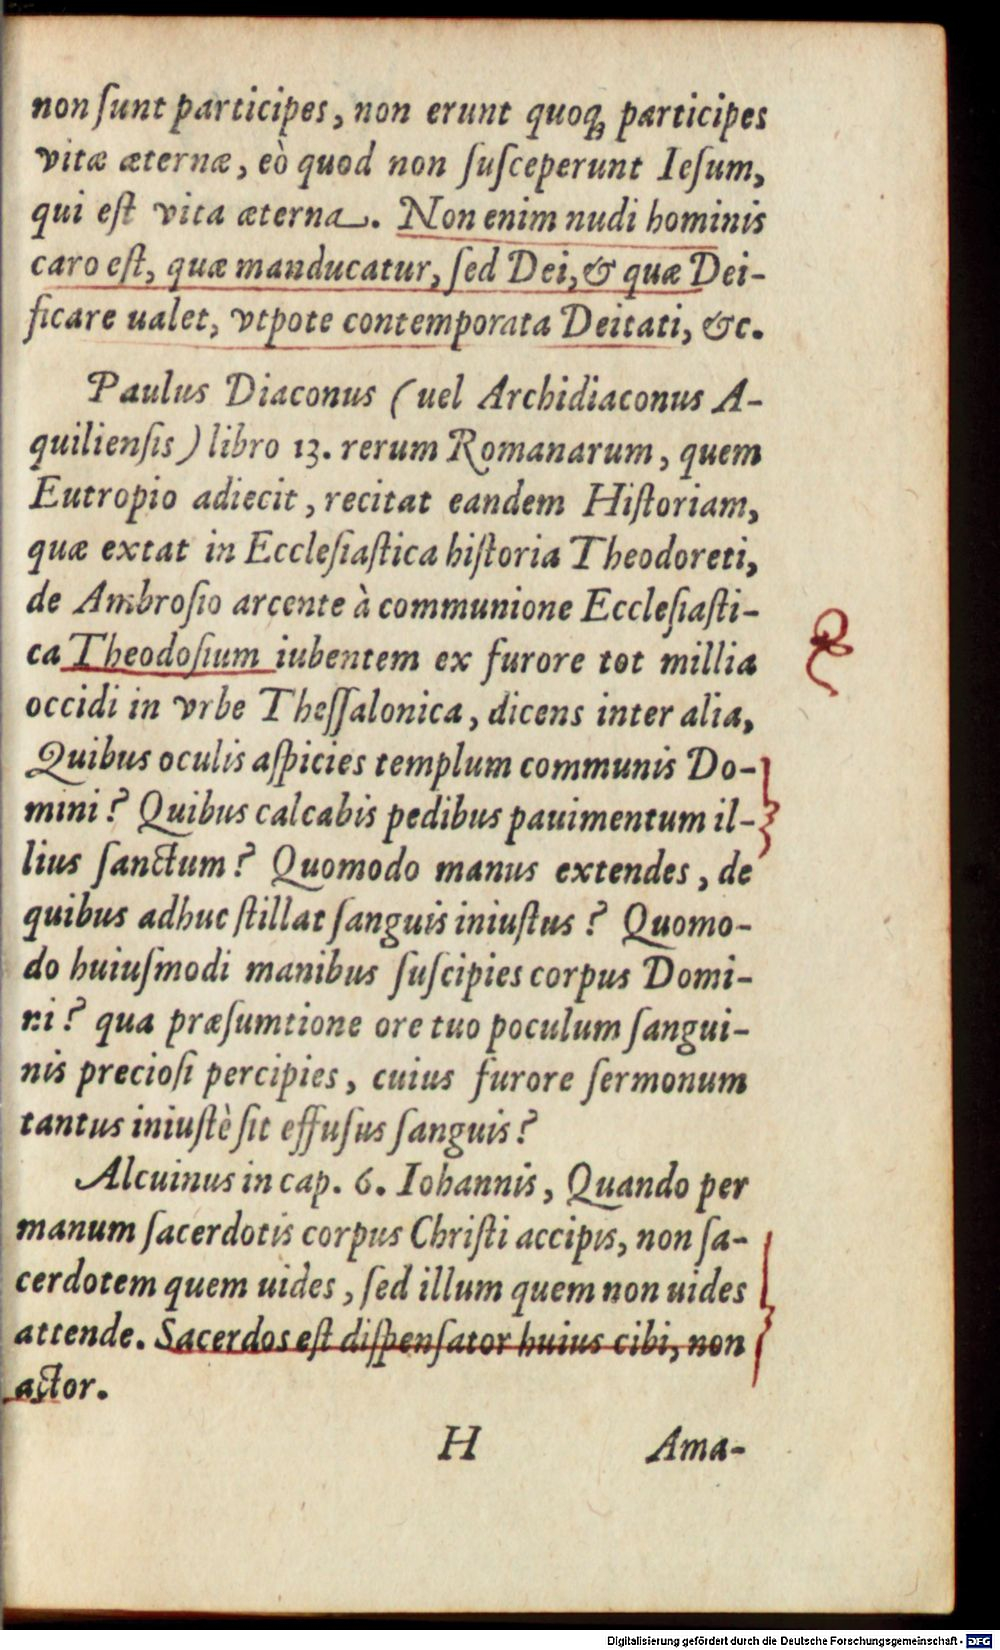 non ſunt participes, non erunt quoq; participes
vitæ æternæ, eò quod non ſuſceperunt Ieſum,
qui eſt vita æterna. Non enim nudi hominis
caro eſt, quæ manducatur, ſed Dei, & quæ Dei-
ficare ualet, vtpote contemporata Deitati, &c.
Paulus Diaconus (uel Archidiaconus A-
quilienſis) libro 13. rerum Romanarum, quem
Eutropio adiecit, recitat eandem Hiſtoriam,
quæ extat in Eccleſiaſtica hiſtoria Theodoreti,
de Ambroſio arcente à communione Eccleſiaſti-
ca Theodoſium iubentem ex furore tot millia
occidi in vrbe Theſſalonica, dicens inter alia,
Quibus oculis aſpicies templum communis Do-
mini? Quibus calcabis pedibus pauimentum il-
lius ſanctum? Quomodo manus extendes, de
quibus adhuc ſtillat ſanguis iniuſtus? Quomo-
do huiuſmodi manibus ſuſcipies corpus Domi-
ni? qua præſumtione ore tuo poculum ſangui-
nis precioſi percipies, cuius furore ſermonum
tantus iniuſtè ſit effuſus ſanguis?
Alcuinus in cap. 6. Iohannis, Quando per
manum ſacerdotis corpus Chriſti accipis, non ſa-
cerdotem quem uides, ſed illum quem non uides
attende. Sacerdos eſt diſpenſator huius cibi, non
actor.
H Ama-
Digitalisierung gefördert durch die Deutsche Forschungsgemeinschaft - DFG